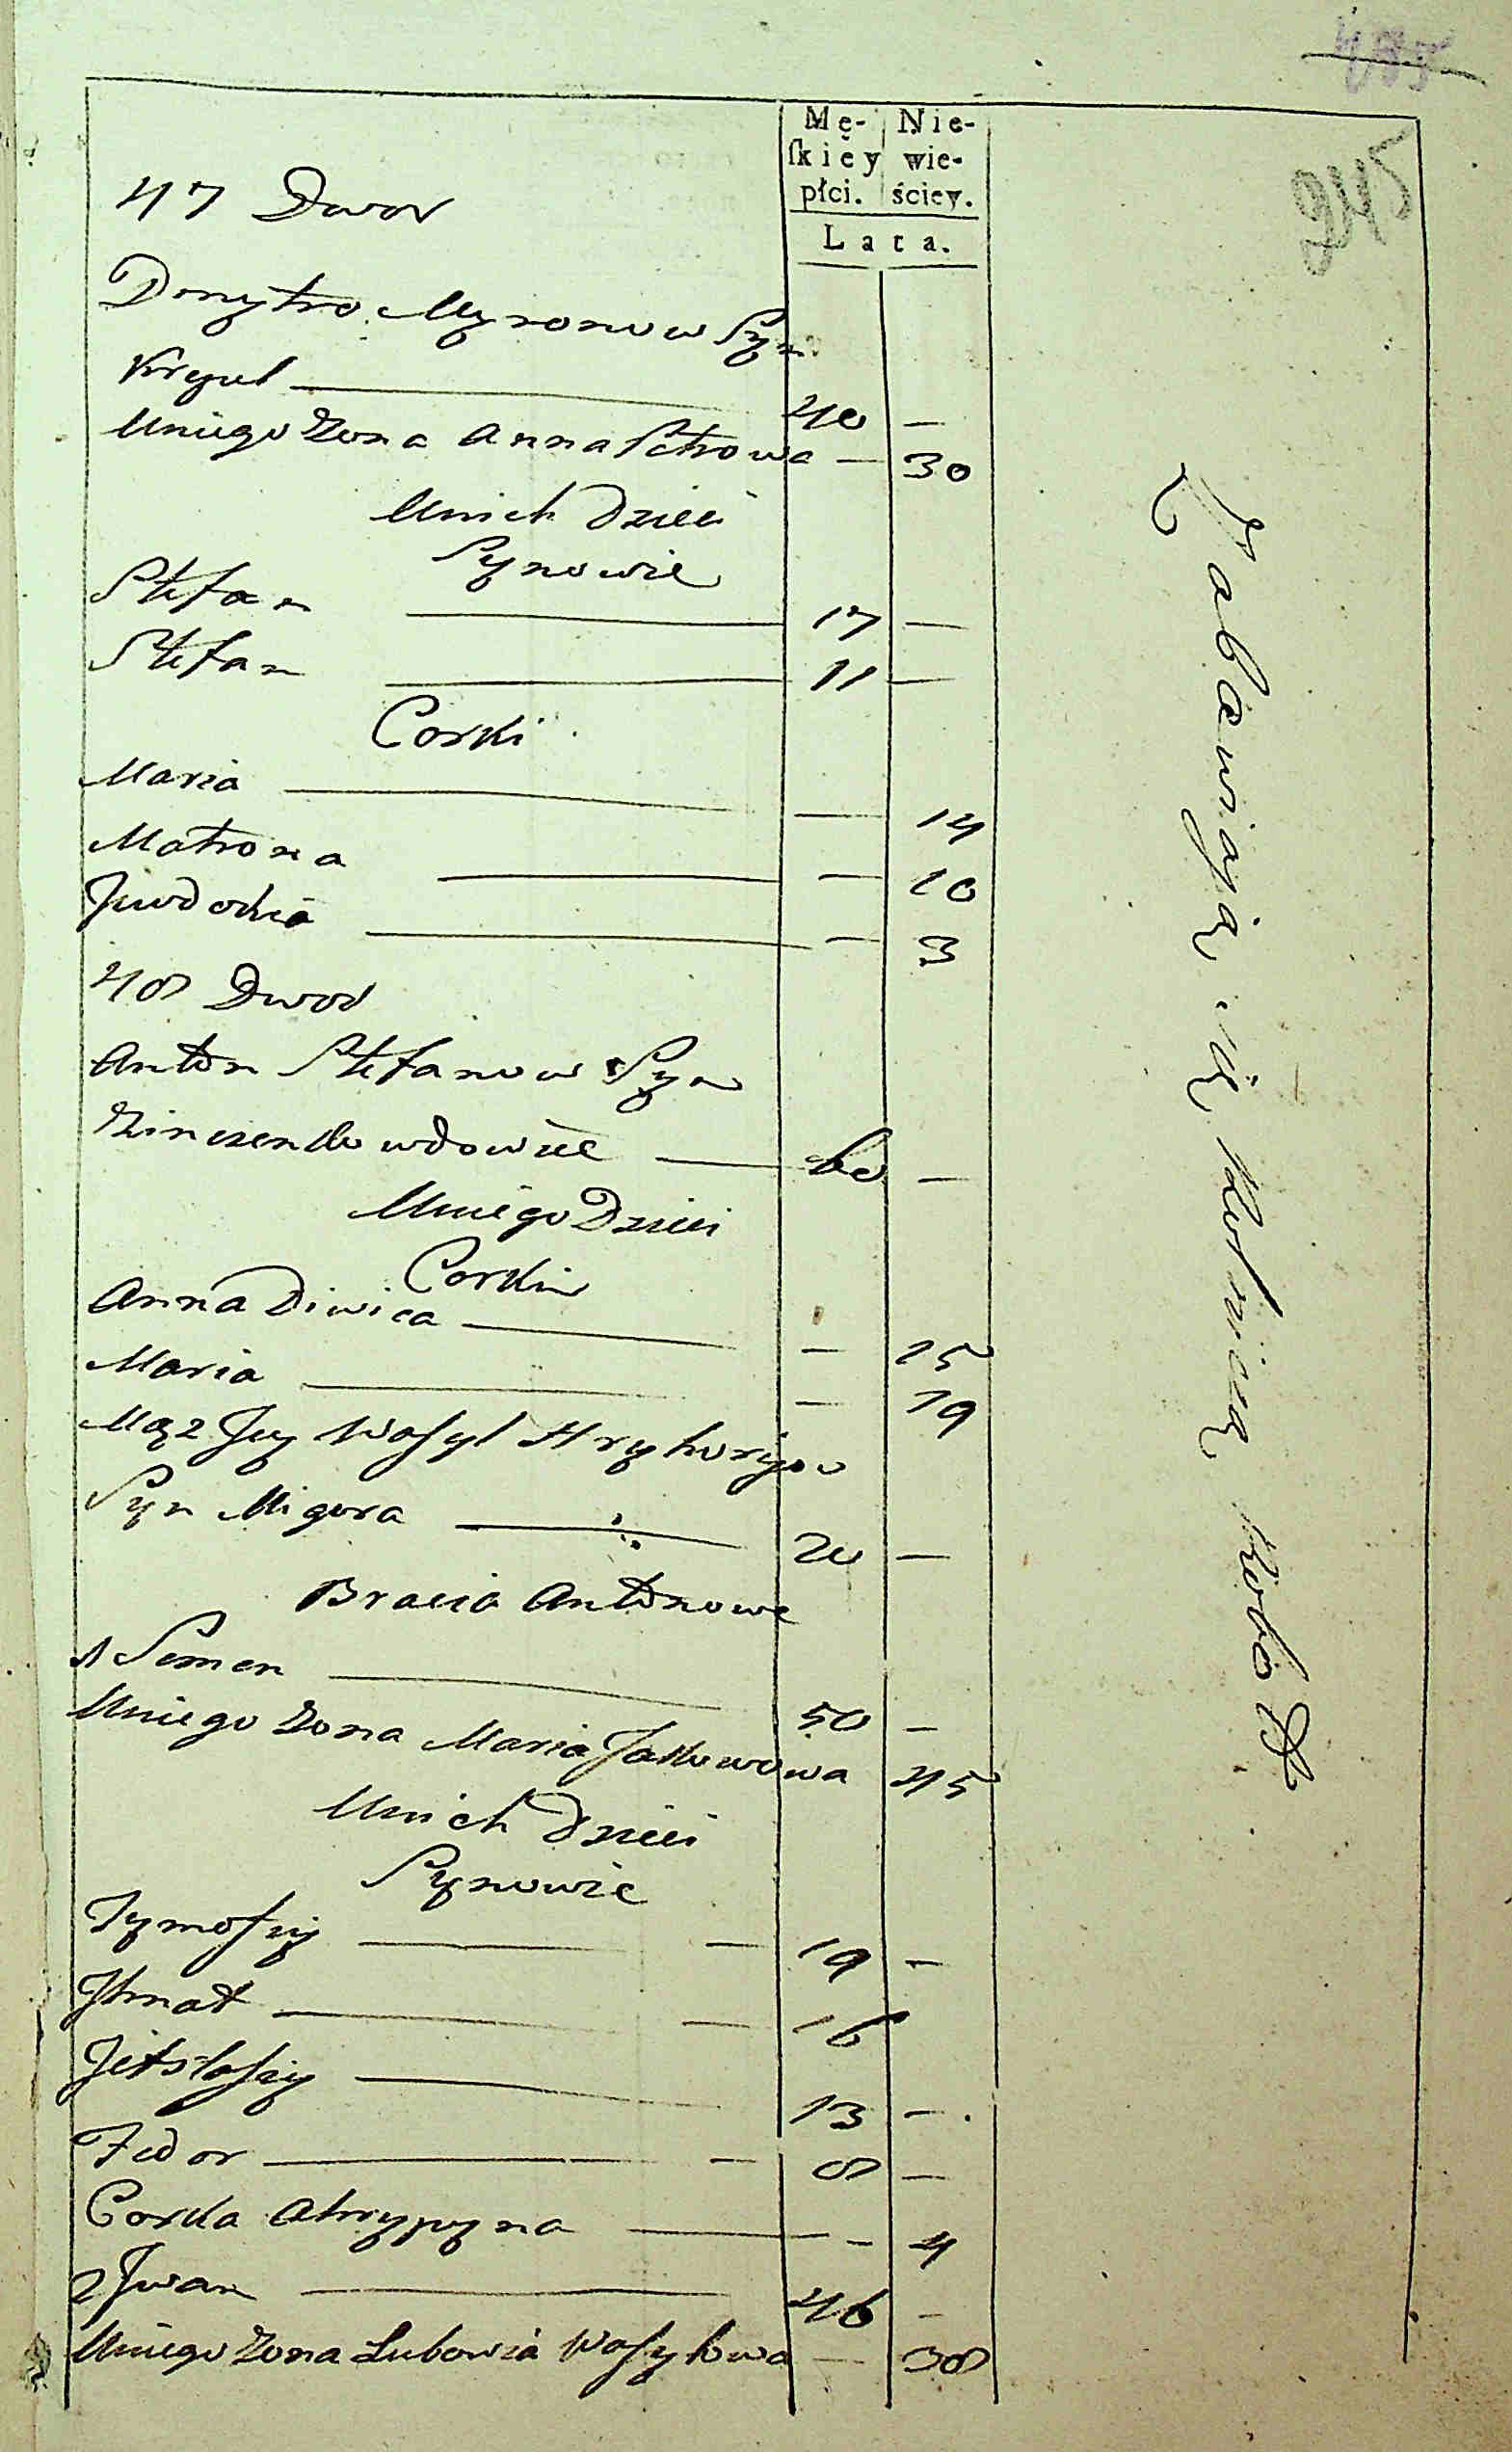 495
245
Mę-
ſkiey
płci.
Nie-
wie-
ściey.
Lata.
47 Dwor
Dmytro Myronow Syn
Krqul 40 —
Uniego Zona Anna Petrowa — 30
Unich Dzieci
Synowie
Stefan 17 —
Stefan 11 —
Corki
Maria — 14
Matrona — 10
Juwdokia — 3
48 Dwor
Anton Stefanow Syn
Zinczenko wdowiec 60 —
Uniego Dzieci
Corki
Anna Diwica — 15
Maria — 19
Mąz Jey Wasyl Hryhoryow
Syn Migora 20 —
Bracia Antonowe
1 Semen 50 —
Uniego Zona Maria Jakowowa 45
Unich Dzieci
Synowie
Tymofiy — 19 —
Jhnat — 16
13 —
Fedor — 8 —
Corka Ahrypyna — 4
2 Jwan 46 —
Uniego Zona Lubowia Wasylowa — 38
Zabawiaią się Rolniczą Robotą